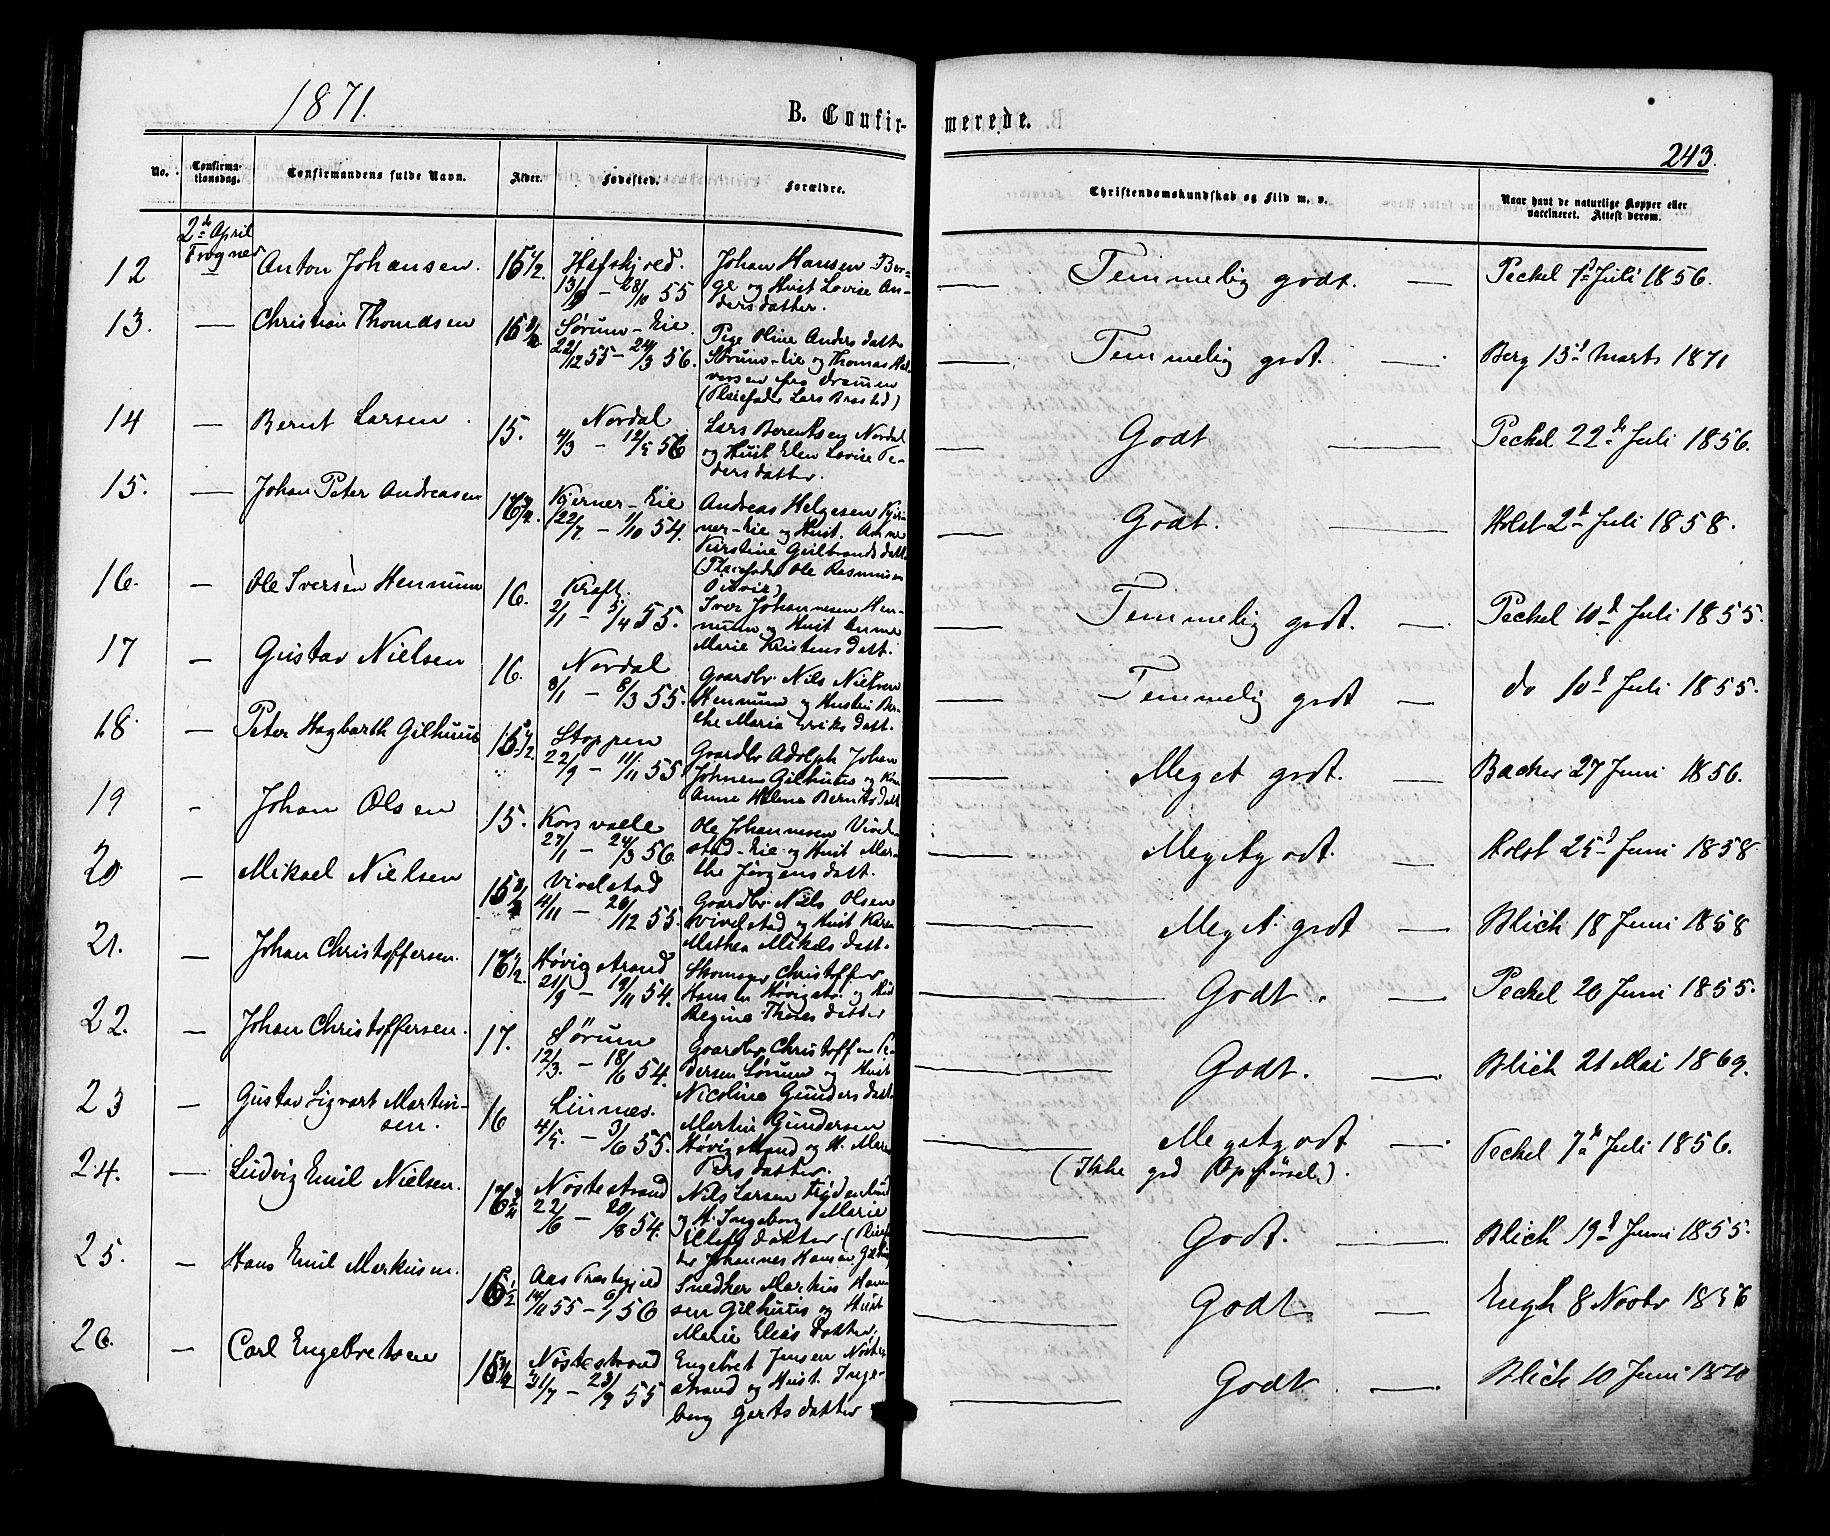 1871.
B. Confir-
merede.
243.
No.
Confirma-
tionsdag.
Confirmandens fulde Navn.
Alder.
Fødested.
Forældre.
Christendomskundskab og Flid m. v.
Naar havt de naturlige Kopper eller
vaccineret. Attest derom.
2de April
Frogner
12 Anton Johansen. 15 1/2 Hafskjold. 28/10 55
Johan Hansen Bor-
ge og Hust Lovise An-
dersdatter.
Temmelig godt. Peckel 7d Juli 1856.
13. — Christian Thomasen 15 Sørum-Eie. 22/12 55 – 24/3 56.
Pige Oline Anders datt
Sørum-Eie og Thomas Hal-
vorsen fra Dramen
(Pleiefader Lars Brasted)
Temmelig godt. Berg 13d Marts 1871
14 — Bernt Larsen. 15. Nordal 4/3 – 12/5 56
Lars Berentsen Nordal
og Hust Elen Lovise Pe-
dersdatter.
Godt Peckel 22de Juli 1856.
15. — Johan Peter Andreasen 16 Kjerner-Eie 22/7 – 1/10 54.
Andreas Helgesen Kjer-
ner-Eie og Hust. Anne
Kirstine Gulbrands datt
(Pleiefader Ole Rasmusen
Godt. Holst 2d Juli 1858.
16. — Ole Iversen Hennum 16. Kraft. 2/1 – 5/4 55.
Iver Johannesen Hen-
num og Hust Anne
Marie Kristens datt.
Temmelig godt. Peckel 10d Juli 1855.
17 — Gustav Nielsen 16. Nordal 3/1 – 8/3 55.
Gaardbr. Nils Nielsen
Hennum og Hustru Ber-
the Maria Eriks datt.
Temmelig godt do 10d Juli 1855.
18. — Peter Hagbarth Gilhuus 15 1/2 Stoppen 22/9 – 11/11 55
Gaardbr Adolph Johan
Johnsen Gilhuus og
Anne Helene Berntsdatt
Meget godt. Backer 27 Juni 1856.
19 - Johan Olsen 15. Korsvolle 27/1 – 24/3 56
Ole Johannesen Vivel-
stad-Eie og Hust Mar-
the Jørgensdatt.
Megetgodt. Holst 25d Juni 1858
20 — Mikael Nielsen 15 Vivelstad 4/11 – 26/12 55.
Gaardbr Niels Olsen
Vivelstad og Hust Karen
Mathea Mikels datt.
Meget godt Blich 18 Juni 1858
21. — Johan Christoffersen. 16 1/2 Høvigstrand 21/9 – 19/11 54.
Skomager Christoffer
Hansen Høvigstr. og
Regine Thoresdatter
Godt. Peckel 20 Juni 1855.
22. — Johan Christoffersen. 17. Sørum 12/3. – 18/6 54.
Gaardbr Christoffer Pe-
dersen Sørum og Hust
Nicoline Gunders datt.
Godt. Blich 21 Mai 1869.
23 — Gustav Sigvart Martin-
sen. 16 Linnes. 4/5. – 3/6 55.
Martin Gundersen
Høvigstrand og H. Maren
Pers datter.
Megetgodt
(Ikke god Opførsel).
Peckel 7de Juli 1856.
24. — Ludvig Emil Nielsen. 16 Nøstestrand 22/6 – 20/8 54.
Nils Larsen
og H. Ingeborg Marie
datter
der Johannes Hansen
Godt. Blich 19d Juni 1855.
25. — Hans Emil Markusen. 15 1/2 Aas Præstegjeld 14/11 55 – 56
Snedker Markus Han-
sen Gilhuus og Hust
Marie Elias Datter.
Godt Engh 8 Novbr 1856
26. — Carl Engebretsen 15 Nøstestrand 31/7 – 23/9 55
Engebret Jensen Nøste-
strand og Hust. Inge-
borg Gorts datter
Godt. Blich 10 Juni 1870